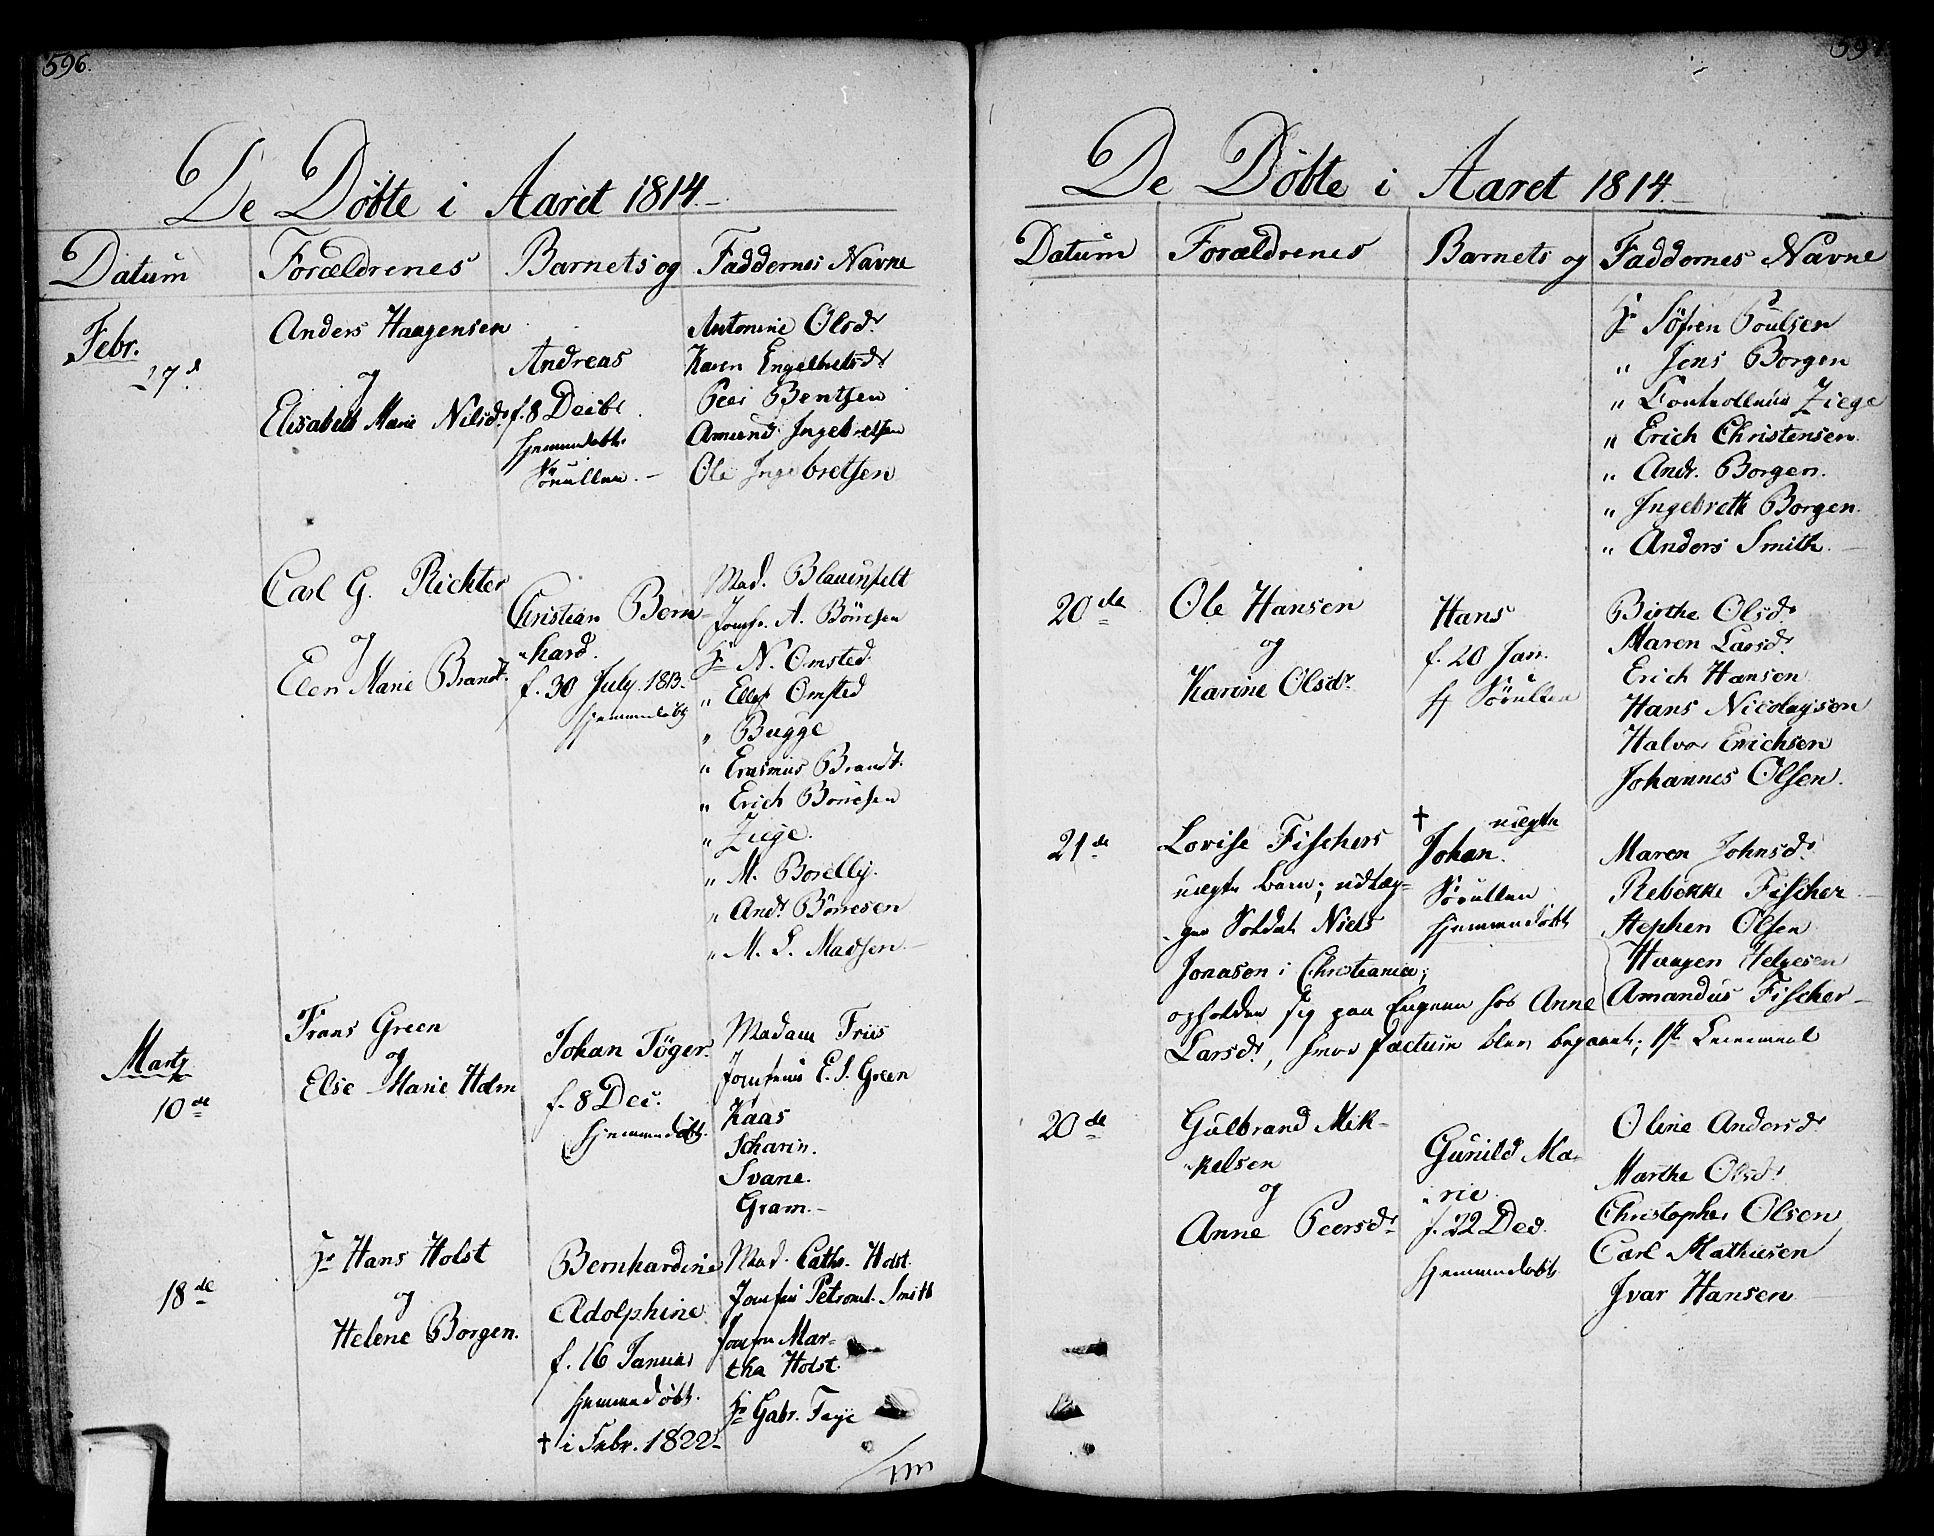 596.
De Döbte i Aaret 1814.
Datum Forældrenes Barnets og Faddernes Navne
Febr.
27d
Anders Haagensen
og
Elisabeth Marie Nilsdr
Andreas
f. 8 Decbr
hjemmedöbt
Antonine Olsdr
Karen Engelbretsdr
Peer Bentsen
Amund Ingebretsen
Ole Ingebretsen
Carl G. Richter
og
Elen Marie Brandt.
Christian Bern-
hard.
f. 30 July. 1813.
hjemmedöbt
Mad. Blauenfelt
Jomfr. A. Börresen
Hr N. Omsted.
" Ellef Omsted
" Bugge
" Erasmus Brandt.
" Erich Börresen
" Ziege.
" M. Borelly.
" Andr Börresen
" M. L. Madsen
Martz
10de
Frans Green
og
Else Marie Holm
Johan Töger.
f. 8 Dec.
hjemmedöbt.
Madam Friis
Jomfrue E. S. Green
Kaas
Scharin.
Svane.
Gram.
18de
Hr Hans Holst
og
Helene Borgen.
Bernhardine
Adolphine
f. 16 Januar
hjemmedöbt.
† i Febr. 1822
Mad. Cathr. Holst.
Jomfru Petronel. Smith
Jomfru Mar-
tha Holst.
Hr Gabr. Feye
De Döbte i Aaret 1814.
Datum Forældrenes Barnets og Faddernes Navne
Hr Söfren Poulsen
" Jens Borgen
" Controlleur Ziege
" Erich Christensen.
" Andr. Borgen.
" Ingebreth Borgen.
" Anders Smith.
20de
Ole Hansen
og
Karine Olsdr
Hans
f. 20 Jan.
Birthe Olsdr
Maren Larsdr
Erich Hansen
Hans Nicolaysen
Halvor Erichsen
Johannes Olsen.
21de
Lovise Fischers
uægte barn; udlæg-
ger Soldat Niels
Jonasen i Christiania;
opholder sig paa Engene hos Anne
Larsdr, hvor factum blev begaaet; 1st Leiermaal
† uægte
Johan.
hjemmedöbt
Maren Johnsdr
Rebekke Fischer
Stephen Olsen
Haagen Helgesen
Amandus Fischer
20de
Gulbrand Mik-
kelsen
og
Anne Peersdr
Gunild Ma-
rie.
f. 22 Dec.
hjemmedöbt.
Oline Andersdr
Marthe Olsdr
Christopher Olsen
Carl Mathiesen
Ivar Hansen